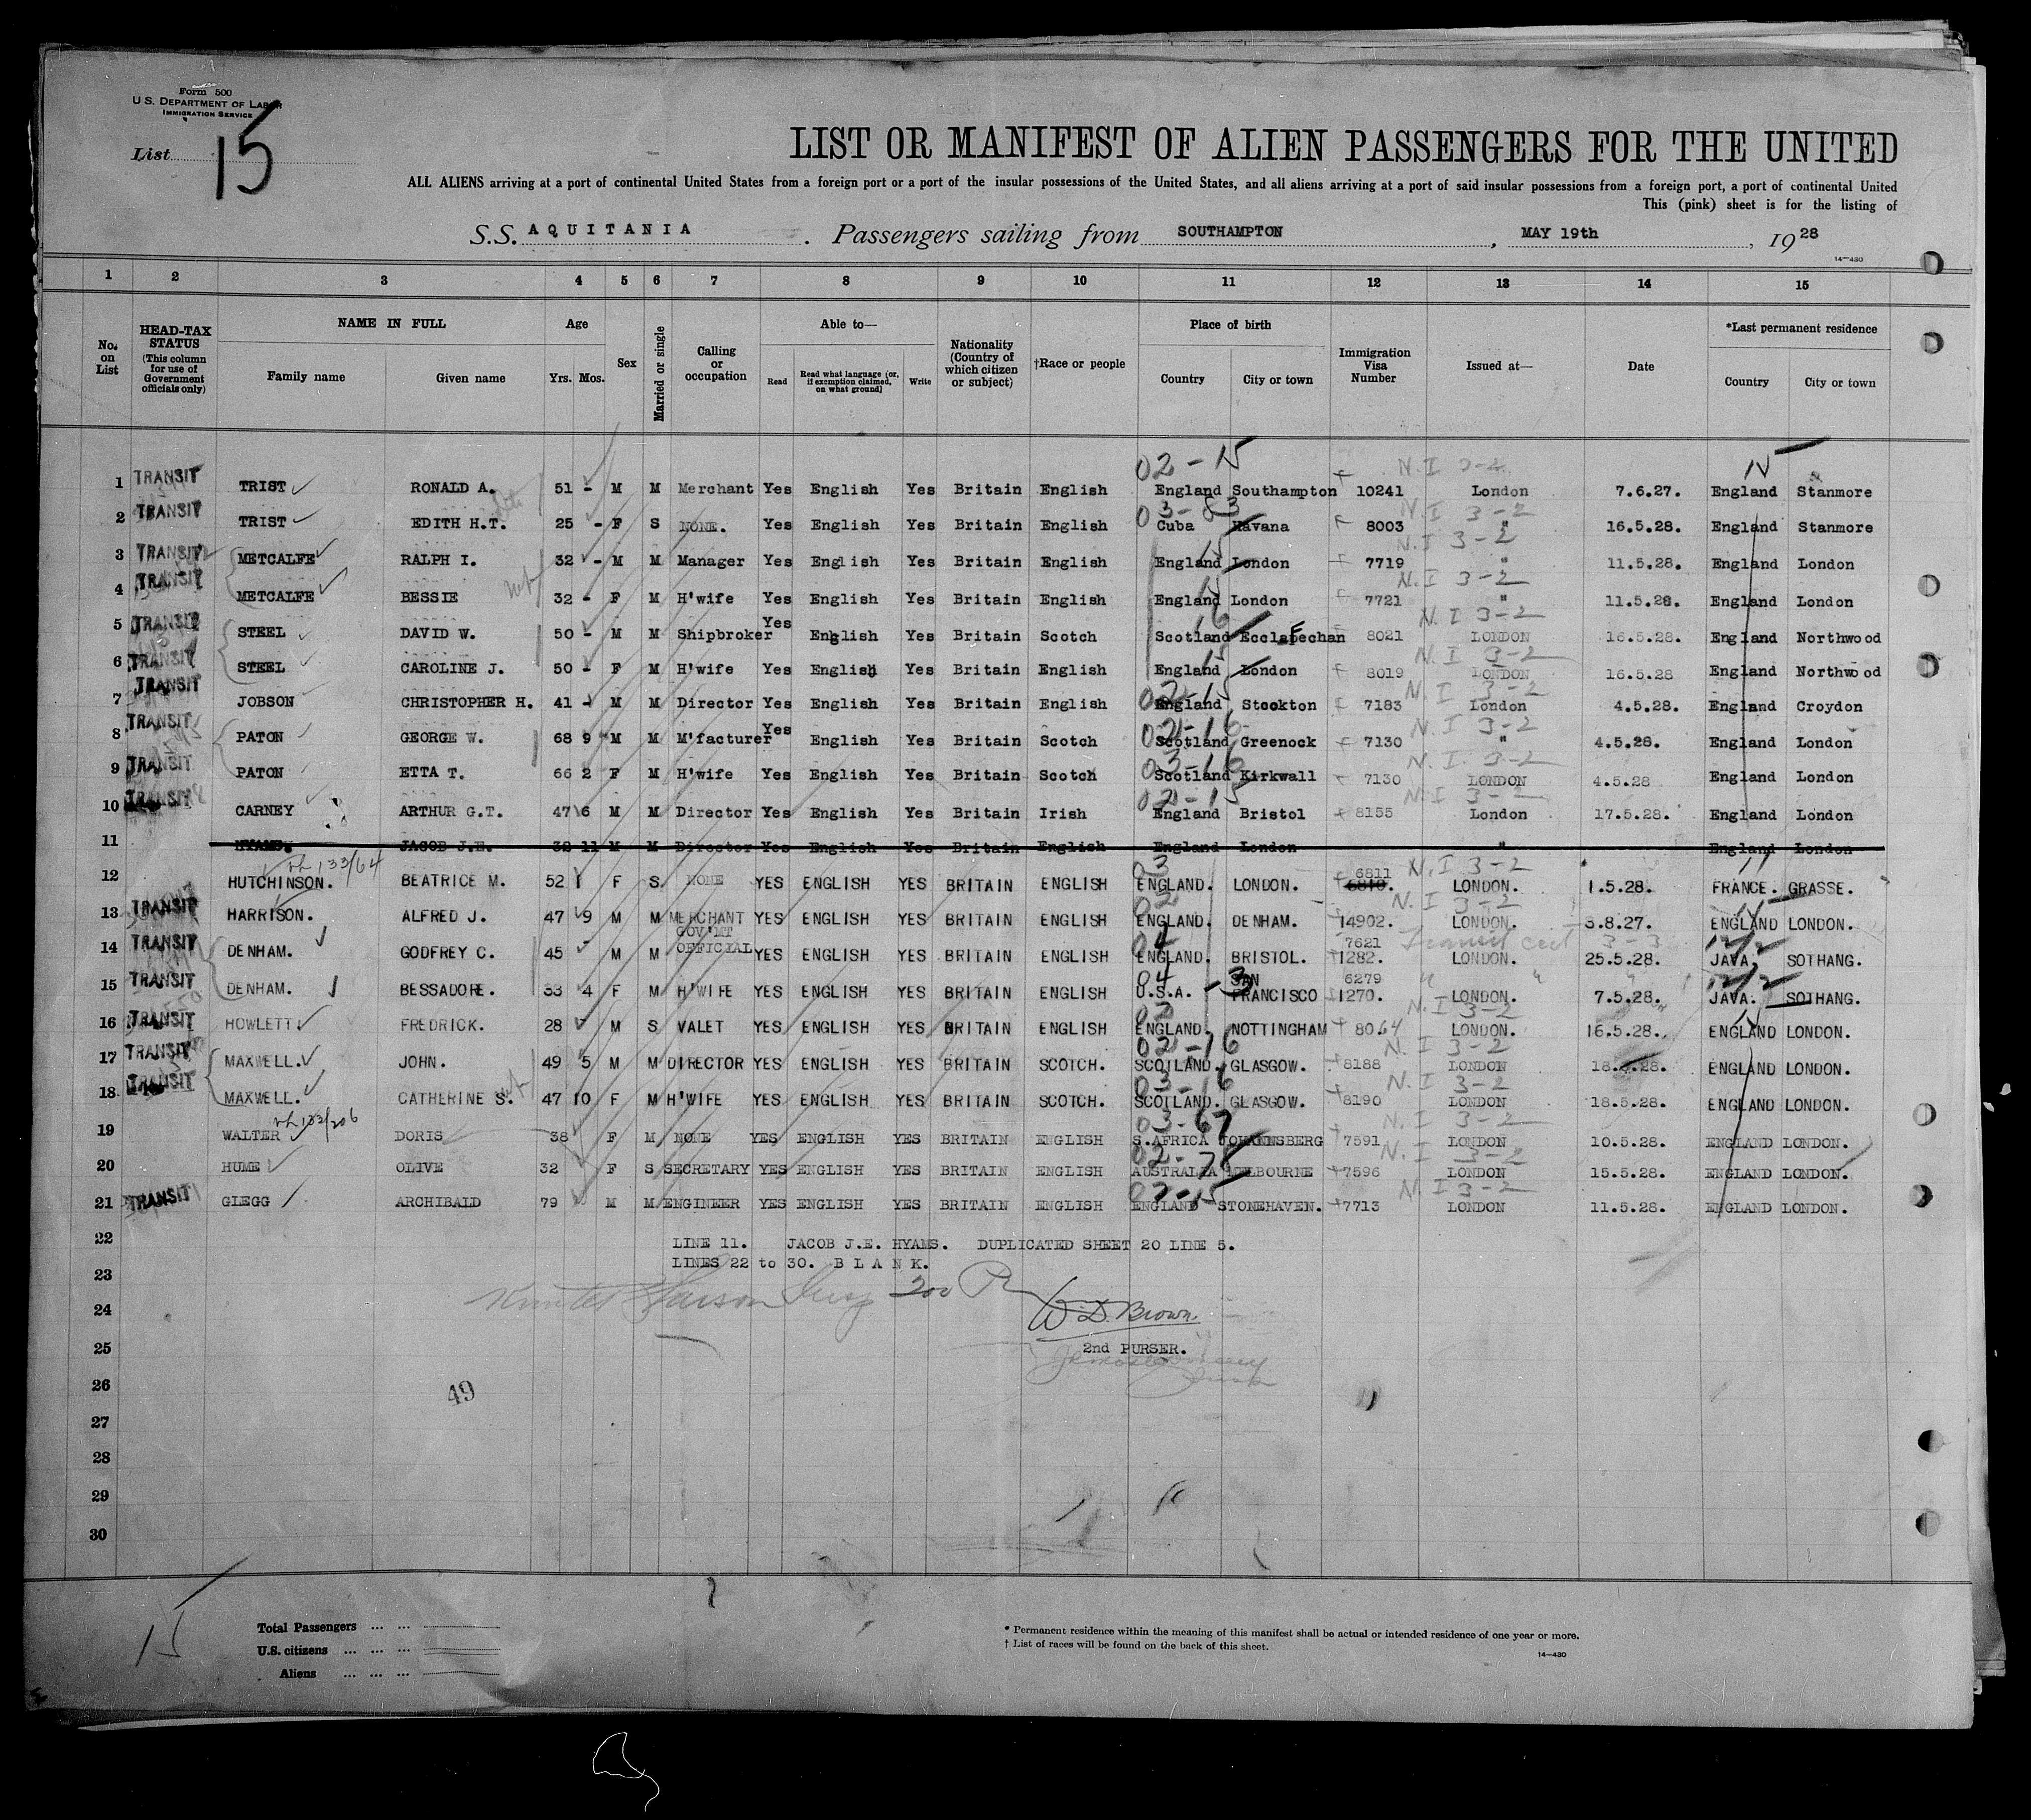 Form 500
U.S. DEPARTMENT OF LABOR
IMMIGRATION SERVICE
List 15
LIST OR MANIFEST OF ALIEN PASSENGERS FOR THE UNITED
ALL ALIENS arriving at a port of continental United States from a foreign port or a port of the insular possessions of the United States, and all aliens arriving at a port of said insular possessions from a foreign port, a port of continental United
This (pink) sheet is for the listing of
S.S. AQUITANIA . Passengers sailing from SOUTHAMPTON , MAY 19th , 1928
14-430
1 2 3 4 5 6 7 8 9 10 11 12 13 14 15
No. on List HEAD-TAX STATUS (This column for use of Government officials only) NAME IN FULL Family name Given name Age Yrs. Mos. Sex Married or single Calling or occupation Able to— Read Read what language (or, if exemption claimed, on what ground) Write Nationality (Country of which citizen or subject) †Race or people Place of birth Country City or town Immigration Visa Number Issued at— Date *Last permanent residence Country City or town
02-15 N.I 3-2 15
1 TRANSIT TRIST RONALD A. 51 - M M Merchant Yes English Yes Britain English England Southampton 10241 London 7.6.27. England Stanmore
03-83 N.I 3-2
2 TRANSIT TRIST EDITH H.T. 25 - F S NONE. Yes English Yes Britain English Cuba Havana 8003 " 16.5.28. England Stanmore
15 N.I 3-2
3 TRANSIT METCALFE RALPH I. 32 - M M Manager Yes English Yes Britain English England London 7719 " 11.5.28. England London
15 N.I 3-2
4 TRANSIT METCALFE BESSIE 32 - F M H'wife Yes English Yes Britain English England London 7721 " 11.5.28. England London
16 N.I 3-2
5 TRANSIT STEEL DAVID W. 50 - M M Shipbroker Yes English Yes Britain Scotch Scotland Ecclafechan 8021 LONDON 16.5.28. England Northwood
15 N.I 3-2
6 TRANSIT STEEL CAROLINE J. 50 - F M H'wife Yes English Yes Britain English England London 8019 LONDON 16.5.28 England Northwood
02-15 N.I 3-2
7 TRANSIT JOBSON CHRISTOPHER H. 41 - M M Director Yes English Yes Britain English England Stockton 7183 London 4.5.28. England Croydon
02-16 N.I 3-2
8 TRANSIT PATON GEORGE W. 68 9 M M M'facturer Yes English Yes Britain Scotch Scotland Greenock 7130 " 4.5.28. England London
03-16 N.I 3-2
9 TRANSIT PATON ETTA T. 66 2 F M H'wife Yes English Yes Britain Scotch Scotland Kirkwall 7130 LONDON 4.5.28 England London
02-15 N.I 3-2
10 TRANSIT CARNEY ARTHUR G.T. 47 6 M M Director Yes English Yes Britain Irish England Bristol 8155 London 17.5.28. England London
11 HYAMS. JACOB J.E. 32 11 M M Director Yes English Yes Britain English England London " England London
133/64 03 6811 N.I 3-2 11
12 HUTCHINSON. BEATRICE M. 52 1 F S. NONE YES ENGLISH YES BRITAIN ENGLISH ENGLAND. LONDON. 6810. LONDON. 1.5.28. FRANCE. GRASSE.
02 N.I 3-2
13 TRANSIT HARRISON. ALFRED J. 47 9 M M MERCHANT YES ENGLISH YES BRITAIN ENGLISH ENGLAND. DENHAM. 14902. LONDON. 3.8.27. ENGLAND LONDON.
04 7621 Transit cert 3-3
14 TRANSIT DENHAM. GODFREY C. 45 M M GOV'MT OFFICIAL YES ENGLISH YES BRITAIN ENGLISH ENGLAND. BRISTOL. 1282. LONDON. 25.5.28. JAVA. SOTHANG.
04-3 6279 " "
15 TRANSIT DENHAM. BESSADORE. 33 4 F M H'WIFE YES ENGLISH YES BRITAIN ENGLISH U.S.A. SAN FRANCISCO 1270. LONDON. 7.5.28. JAVA. SOTHANG.
02 N.I 3-2
16 TRANSIT HOWLETT FREDRICK. 28 M S VALET YES ENGLISH YES BRITAIN ENGLISH ENGLAND. NOTTINGHAM 8064 LONDON. 16.5.28. ENGLAND LONDON.
02-16 N.I 3-2
17 TRANSIT MAXWELL. JOHN. 49 5 M M DIRECTOR YES ENGLISH YES BRITAIN SCOTCH. SCOTLAND. GLASGOW. 8188 LONDON 18.5.28. ENGLAND LONDON.
03-16 N.I 3-2
18 TRANSIT MAXWELL. CATHERINE S. 47 10 F M H'WIFE YES ENGLISH YES BRITAIN SCOTCH. SCOTLAND. GLASGOW. 8190 LONDON 18.5.28. ENGLAND LONDON.
03-67 N.I 3-2
19 WALTER DORIS 38 F M NONE YES ENGLISH YES BRITAIN ENGLISH S.AFRICA JOHANNSBERG 7591 LONDON 10.5.28. ENGLAND LONDON.
02-78 N.I 3-2
20 HUME OLIVE 32 F S SECRETARY YES ENGLISH YES BRITAIN ENGLISH AUSTRALIA MELBOURNE 7596 LONDON 15.5.28. ENGLAND LONDON.
02-15 N.I 3-2
21 TRANSIT GLEGG ARCHIBALD 79 M M ENGINEER YES ENGLISH YES BRITAIN ENGLISH ENGLAND STONEHAVEN. 7713 LONDON 11.5.28. ENGLAND LONDON.
22 LINE 11. JACOB J.E. HYAMS. DUPLICATED SHEET 20 LINE 5.
LINES 22 to 30. B L A N K.
23
24 W.D. Brown.
25 2nd PURSER.
26 49
27
28
29
30
15
Total Passengers ... ...
U.S. citizens ... ...
Aliens ... ... ...
* Permanent residence within the meaning of this manifest shall be actual or intended residence of one year or more.
† List of races will be found on the back of this sheet.
14-430